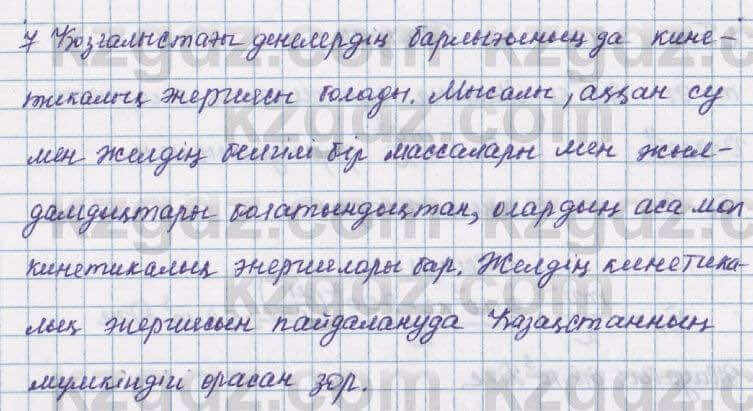 7 Қозғалыстағы денелердің барлығының да кине-
тикалық энергиясы болады. Мысалы, аққан су
мен желдің белгілі бір массалары мен жыл-
дамдықтары болатындықтан, олардың аса мол
кинетикалық энергиялары бар. Желдің кинетика-
лық энергиясын пайдалануда Қазақстанның
мүмкіндігі орасан зор.